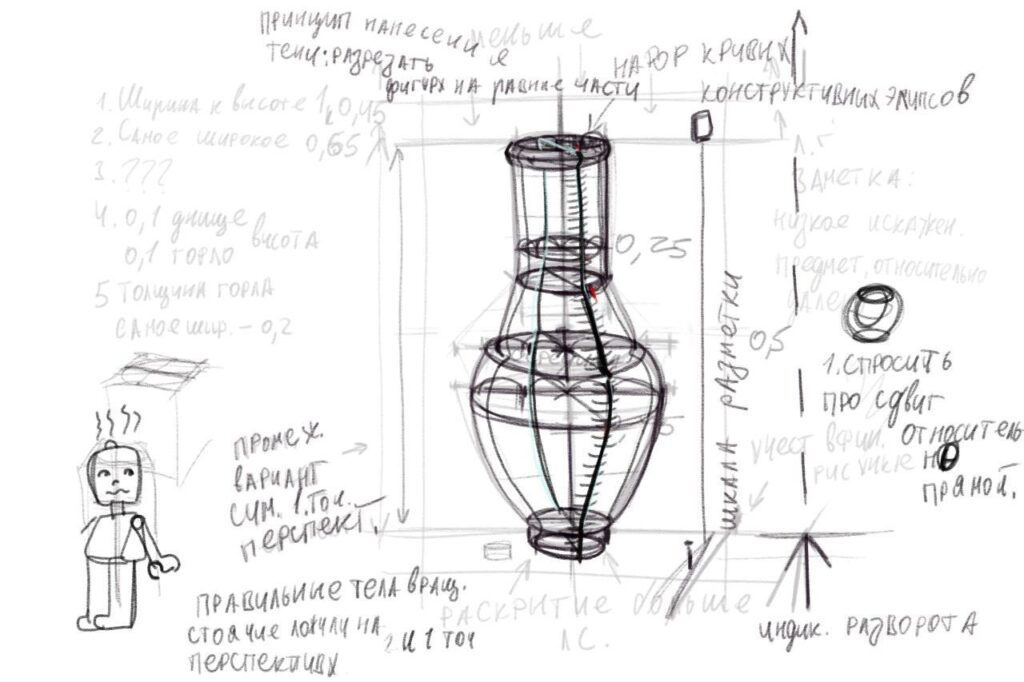 ПРИНЦИП НАНЕСЕНИЯ
ТЕНИ: РАЗРЕЗАТЬ
ФИГУРУ НА РАВНЫЕ ЧАСТИ
меньше
НАБОР КРИВЫХ
КОНСТРУКТИВНЫХ ЭЛИПСОВ
1. Ширина к высоте 1, 0,45
2. Самое широкое 0,65
3. ???
4. 0,1 днище
0,1 горло
высота
5 Толщина горла
самое шир. – 0,2
Л.Г
ЗАМЕТКА:
низкое искажен.
предмет, относительно
0,25
0,5
ШКАЛА РАЗМЕТКИ
1. СПРОСИТЬ
ПРО СДВИГ
ОТНОСИТЕЛЬ
НО
ПРЯМОЙ.
учест
рисунке
ПРОМЕЖ.
ВАРИАНТ
СИМ. 1. ТОЧ.
ПЕРСПЕКТ.
ПРАВИЛЬНЫЕ ТЕЛА ВРАЩ.
СТОЯЧИЕ
НА 2 И 1 ТОЧ
ПЕРСПЕКТИВАХ
РАСКРЫТИЕ больше
ЛС.
ИНДИК. РАЗВОРОТА